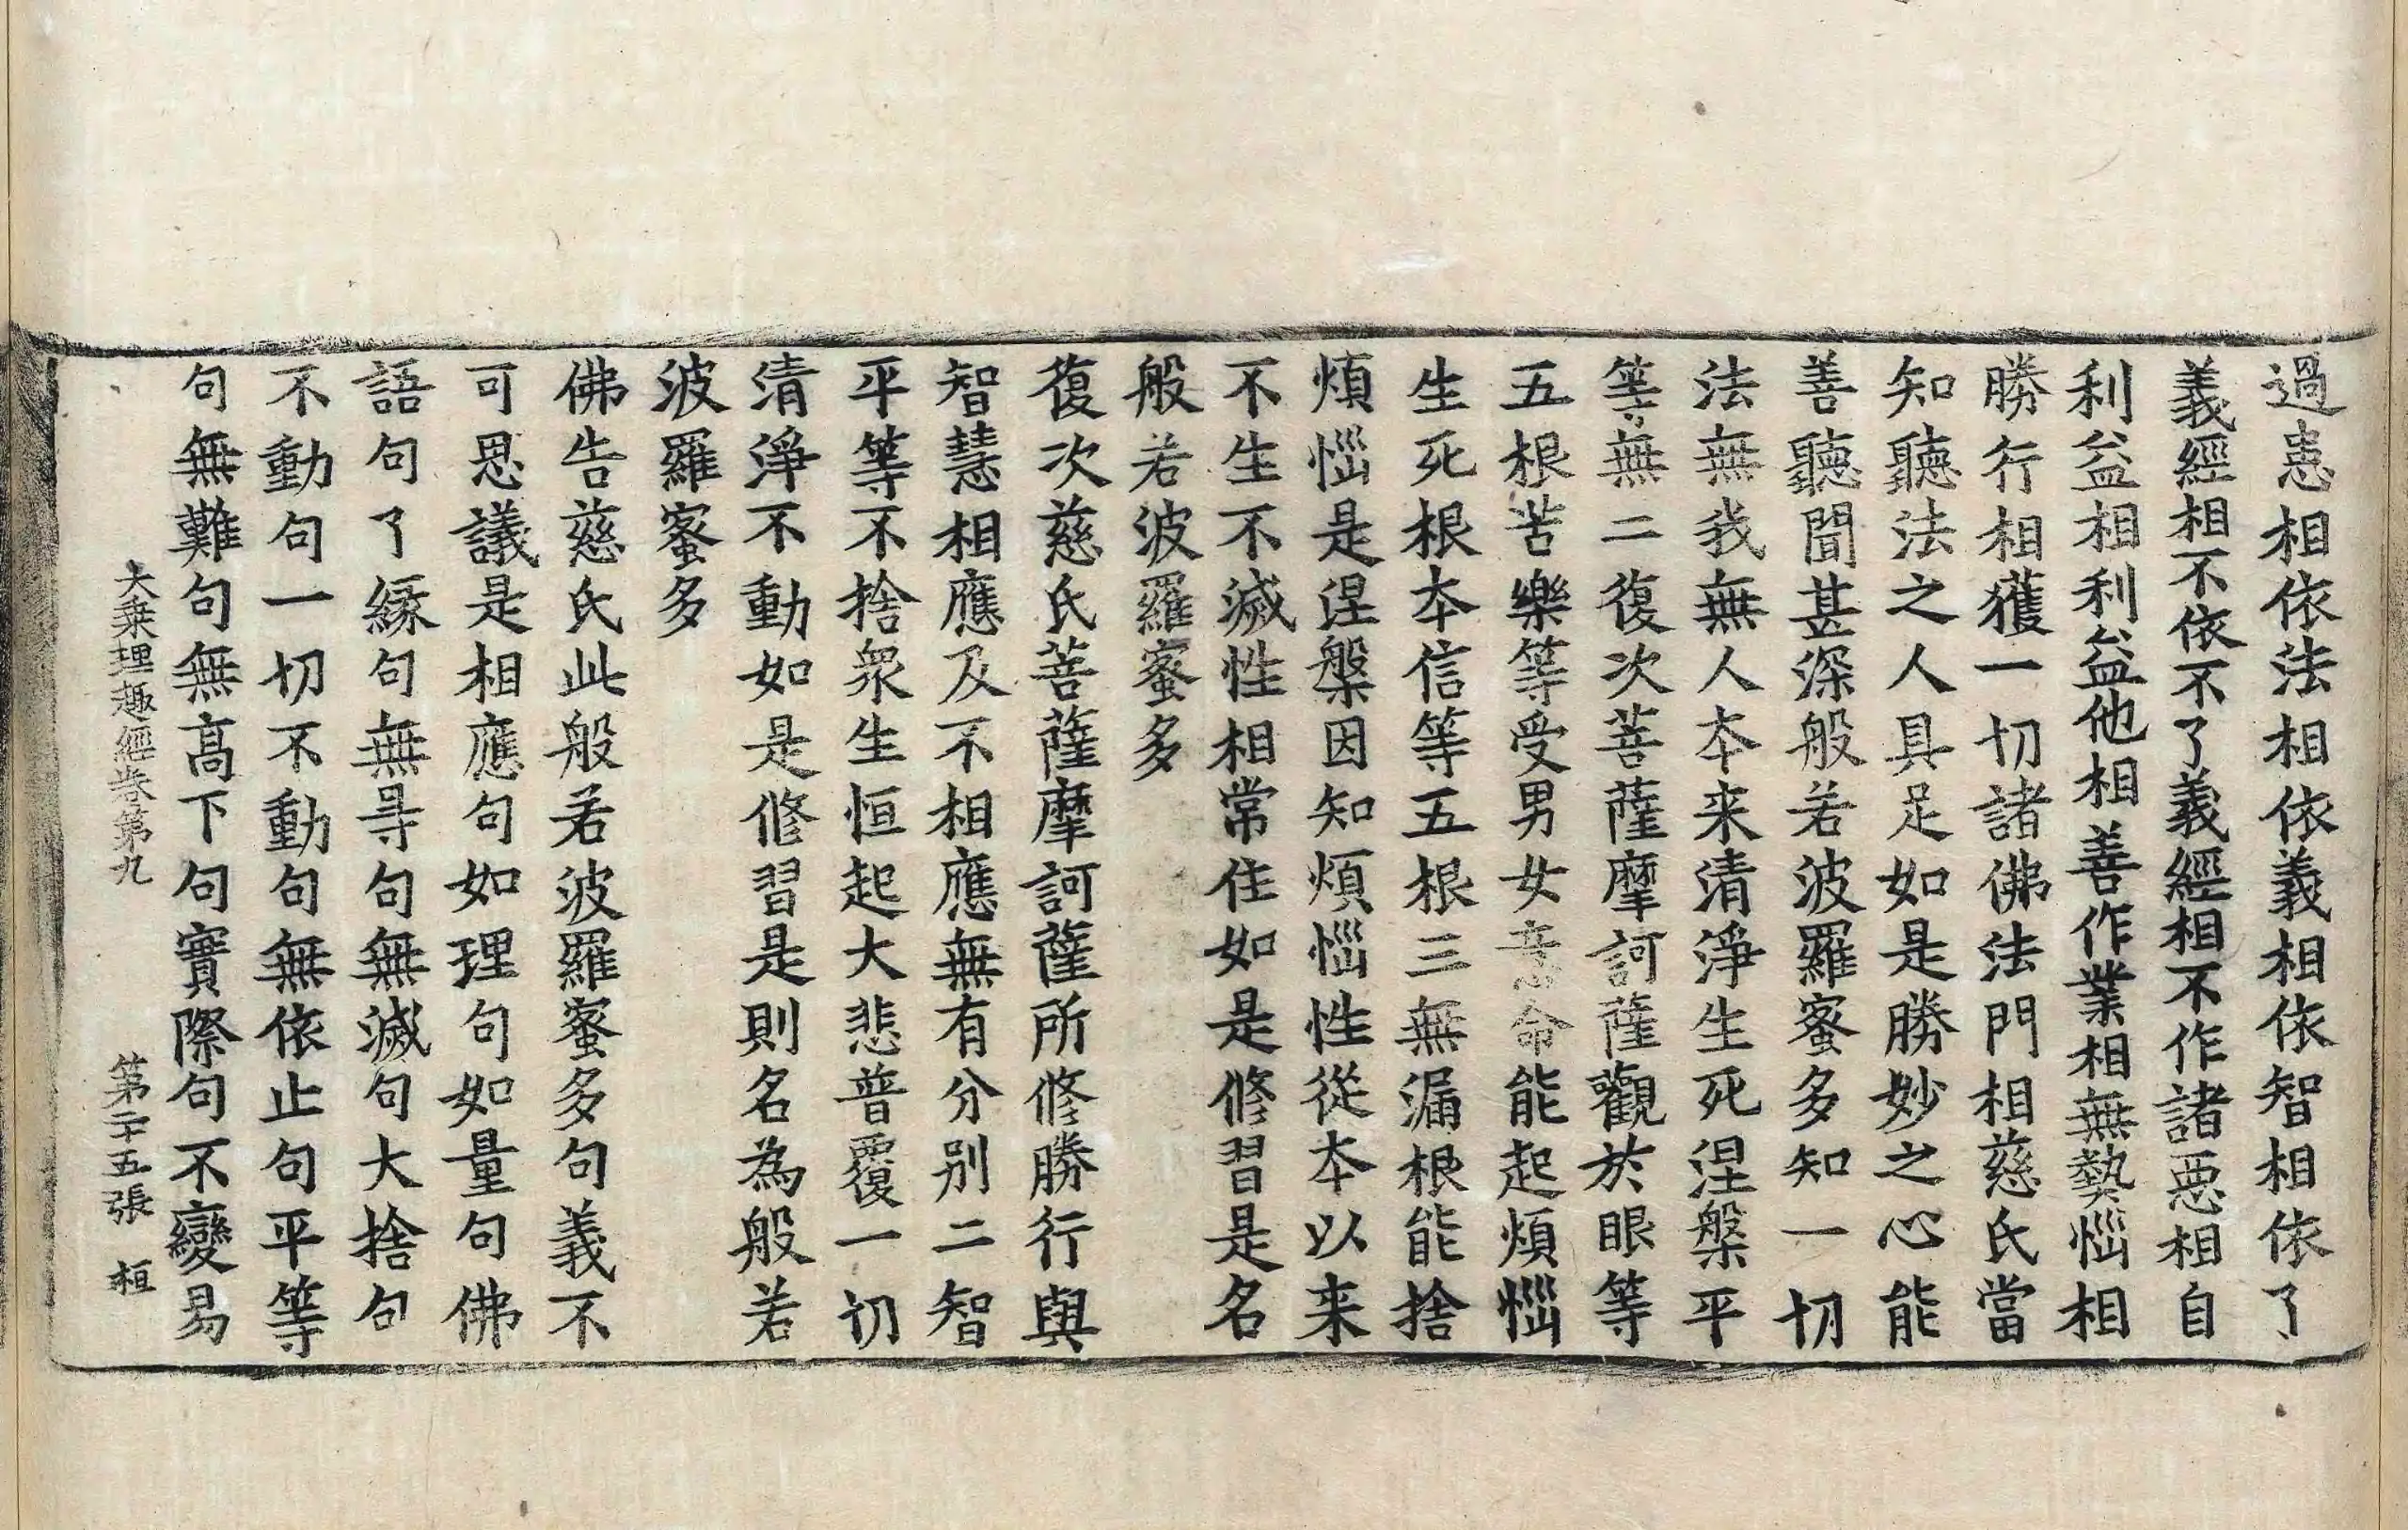 過患相依法相依義相依智相依了
義經相不依不了義經相不作諸惡相自
利益相利益他相善作業相無熱惱相
勝行相獲一切諸佛法門相慈氏當
知聽法之人具足如是勝妙之心能
善聽聞甚深般若波羅蜜多知一切
法無我無人本来清淨生死涅槃平
等無二復次菩薩摩訶薩觀於眼等
五根苦樂等受男女意命能起煩惱
生死根本信等五根三無漏根能捨
煩惱是涅槃因知煩惱性從本以来
不生不滅性相常住如是修習是名
般若波羅蜜多
復次慈氏菩薩摩訶薩所修勝行與
智慧相應及不相應無有分別二智
平等不捨衆生恒起大悲普覆一切
清淨不動如是修習是則名為般若
波羅蜜多
佛告慈氏此般若波羅蜜多句義不
可思議是相應句如理句如量句佛
語句了緣句無㝵句無滅句大捨句
不動句一切不動句無依止句平等
句無難句無高下句實際句不變易
大乘理趣經卷第九 第二十五張 桓